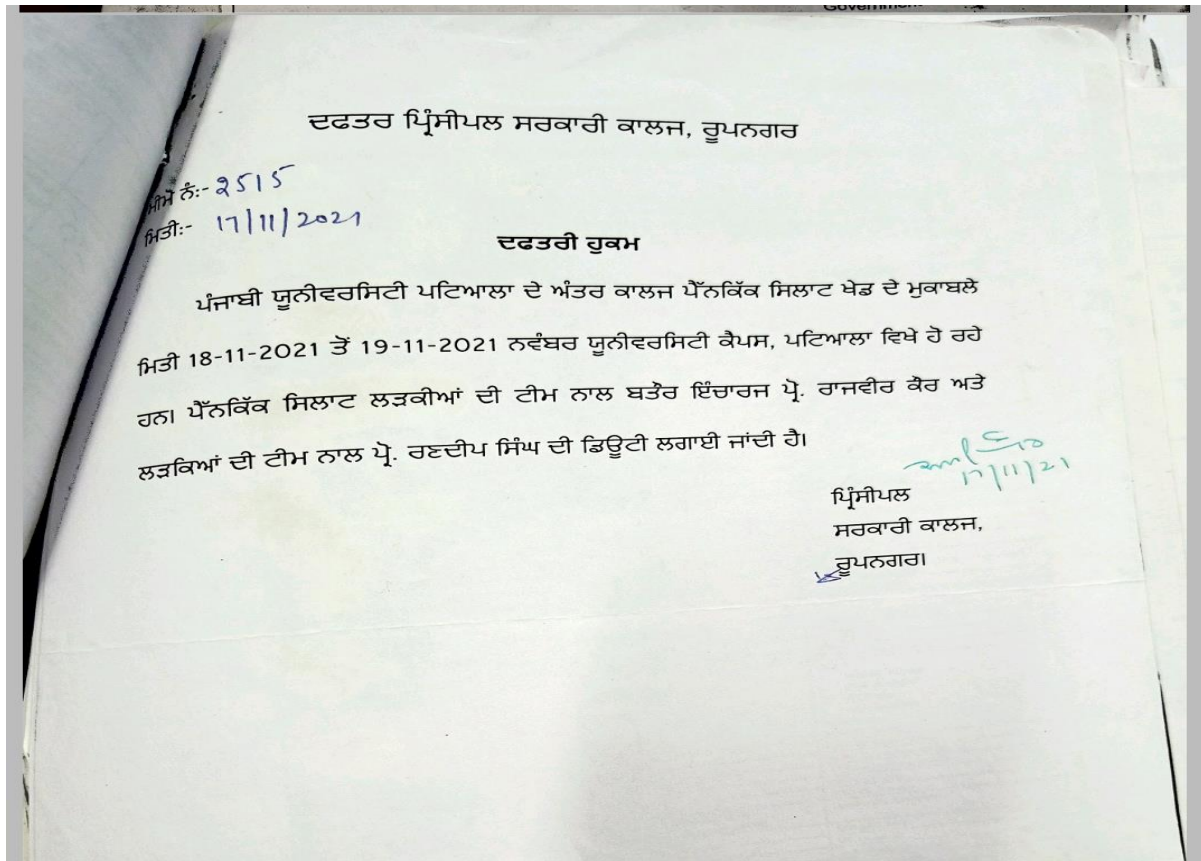 Government
ਦਫਤਰ ਪ੍ਰਿੰਸੀਪਲ ਸਰਕਾਰੀ ਕਾਲਜ, ਰੂਪਨਗਰ
ਮੀਮੋ ਨੰ:- 2515
ਮਿਤੀ:- 17/11/2021
ਦਫਤਰੀ ਹੁਕਮ
ਪੰਜਾਬੀ ਯੂਨੀਵਰਸਿਟੀ ਪਟਿਆਲਾ ਦੇ ਅੰਤਰ ਕਾਲਜ ਪੈੱਨਕਿੱਕ ਸਿਲਾਟ ਖੇਡ ਦੇ ਮੁਕਾਬਲੇ
ਮਿਤੀ 18-11-2021 ਤੋਂ 19-11-2021 ਨਵੰਬਰ ਯੂਨੀਵਰਸਿਟੀ ਕੈਪਸ, ਪਟਿਆਲਾ ਵਿਖੇ ਹੋ ਰਹੇ
ਹਨ। ਪੈੱਨਕਿੱਕ ਸਿਲਾਟ ਲੜਕੀਆਂ ਦੀ ਟੀਮ ਨਾਲ ਬਤੌਰ ਇੰਚਾਰਜ ਪ੍ਰੋ. ਰਾਜਵੀਰ ਕੌਰ ਅਤੇ
ਲੜਕਿਆਂ ਦੀ ਟੀਮ ਨਾਲ ਪ੍ਰੋ. ਰਣਦੀਪ ਸਿੰਘ ਦੀ ਡਿਊਟੀ ਲਗਾਈ ਜਾਂਦੀ ਹੈ।
17/11/21
ਪ੍ਰਿੰਸੀਪਲ
ਸਰਕਾਰੀ ਕਾਲਜ,
ਰੂਪਨਗਰ।